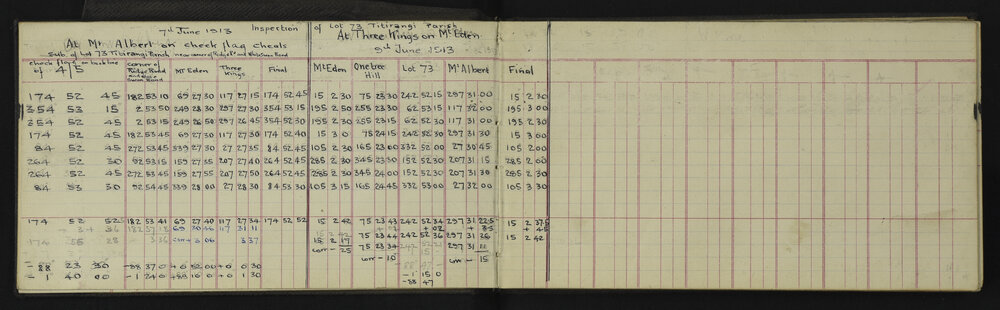 7th June 1913 Inspection of Lot 73 Titirangi Parish
At Mt Albert on check flag cheals At Three Kings on Mt Eden
Sub. of Lot 73 Titirangi Parish near corner of Ridge Rd and 9th June 1913
check flag on back line of 4/5 corner of Ridge Road and Road Mt Eden Three Kings Final Mt Eden Onetree Hill Lot 73 Mt Albert Final
174 52 45 182 53 10 69 27 30 117 27 15 174 52 45 15 2 30 75 23 30 242 52 15 297 31 00 15 2 30
354 53 15 2 53 50 249 28 30 297 27 30 354 53 15 195 2 50 255 23 30 62 53 15 117 32 00 195 3 00
354 52 45 2 53 15 249 26 50 297 26 45 354 52 30 195 2 30 255 23 15 62 52 30 117 31 00 195 2 30
174 52 45 182 53 45 69 27 30 117 27 30 174 52 40 15 3 0 75 24 15 242 52 30 297 31 30 15 3 00
84 52 45 272 53 45 339 27 30 27 27 35 84 52 45 105 2 30 165 23 00 332 52 00 27 30 45 105 2 00
264 52 30 92 53 15 159 27 35 207 27 40 264 52 45 285 2 30 345 23 30 152 52 30 207 31 15 285 2 00
264 52 45 272 53 45 159 27 55 207 27 50 264 52 45 285 2 30 345 24 00 152 52 30 207 31 30 285 2 30
84 53 30 92 54 45 339 28 00 27 28 30 84 53 30 105 3 15 165 24 45 332 53 00 27 32 00 105 3 30
174 52 52 182 53 41 69 27 40 117 27 34 174 52 52 15 2 42 75 23 43 242 52 34 297 31 22.5 15 2 37.5
+ 3 + 36 182 57 18 69 30 46 117 31 11 + 02 + 02 + 3.5 + 4.5
174 56 28 3 36 corr + 3 06 3 37 15 2 42 75 23 44 242 52 36 297 31 26 15 2 42
15 2 17 75 23 34 297 31 11
corr - 25 corr - 10 corr - 15
- 88 23 30 - 88 37 0 + 0 52 00 + 0 0 30 - 1 15 0
- 1 40 00 - 1 24 0 + 88 16 0 + 0 1 30 - 88 47